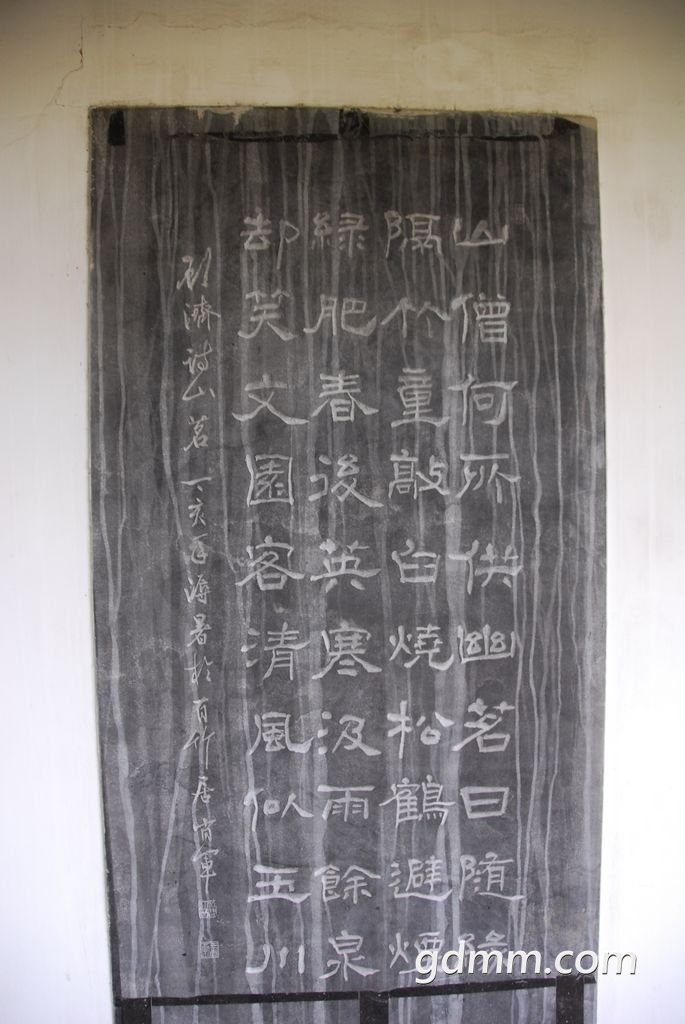 山僧何所供幽茗日随缘
隔竹童敲臼燒松鶴避煙
緑肥春後英寒汲雨餘泉
却笑文園客清風似玉川
濟詩山茗丁亥年溽暑於百竹居肖軍
gdmm.com